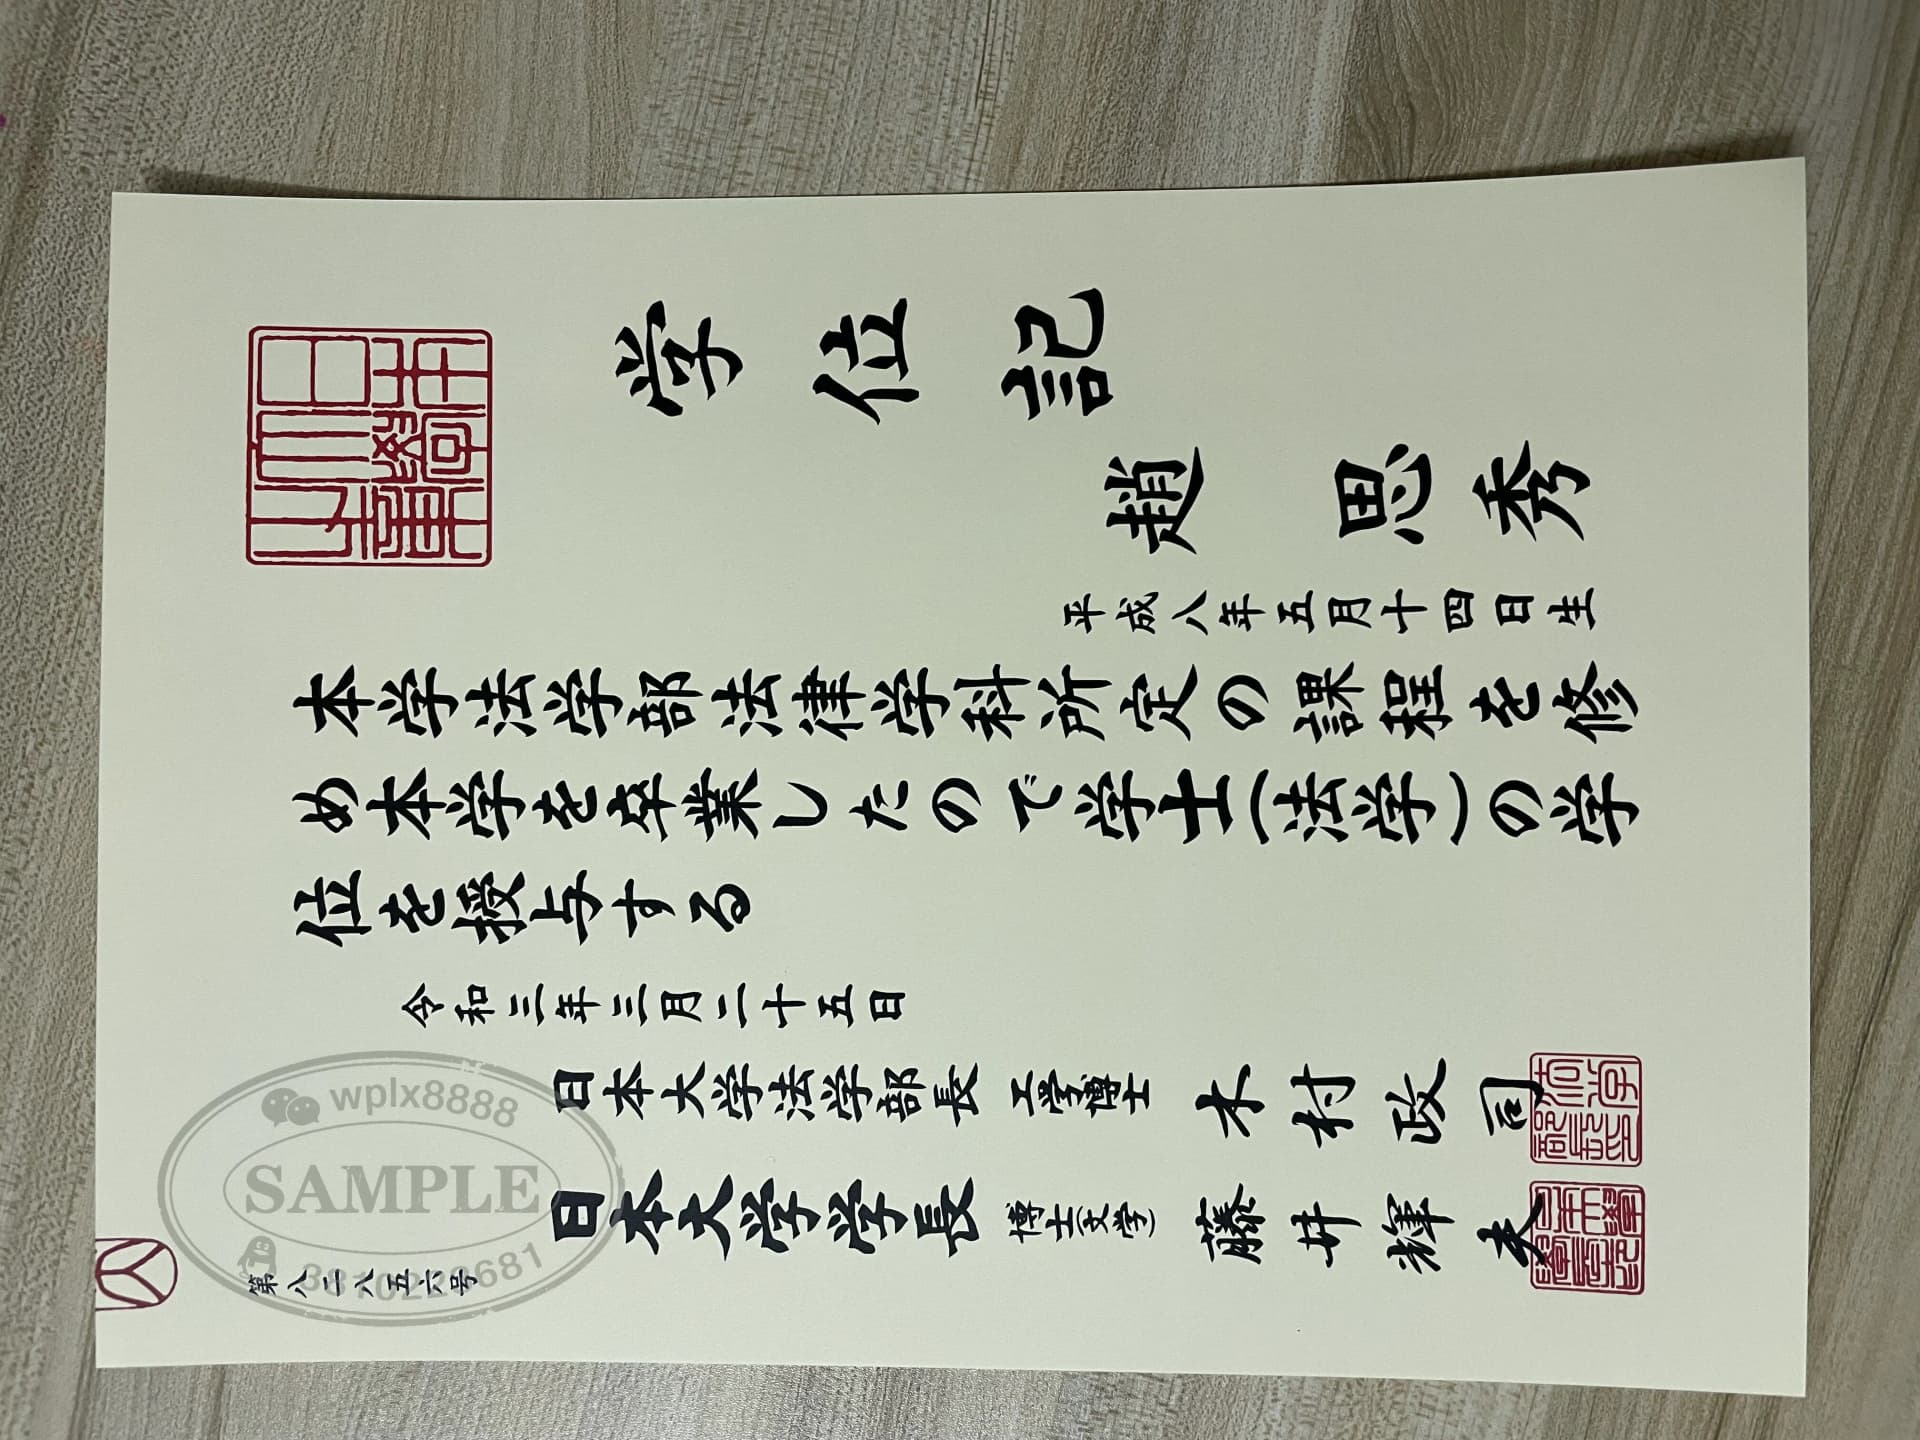 学位記
趙 思秀
平成八年五月十四日生
本学法学部法律学科所定の課程を修
め本学を卒業したので学士(法学)の学
位を授与する
令和三年三月二十五日
日本大学法学部長 工学博士 木村政司
日本大学学長 博士(文学) 藤井輝夫
第八二八五六号
wplx8888
SAMPLE